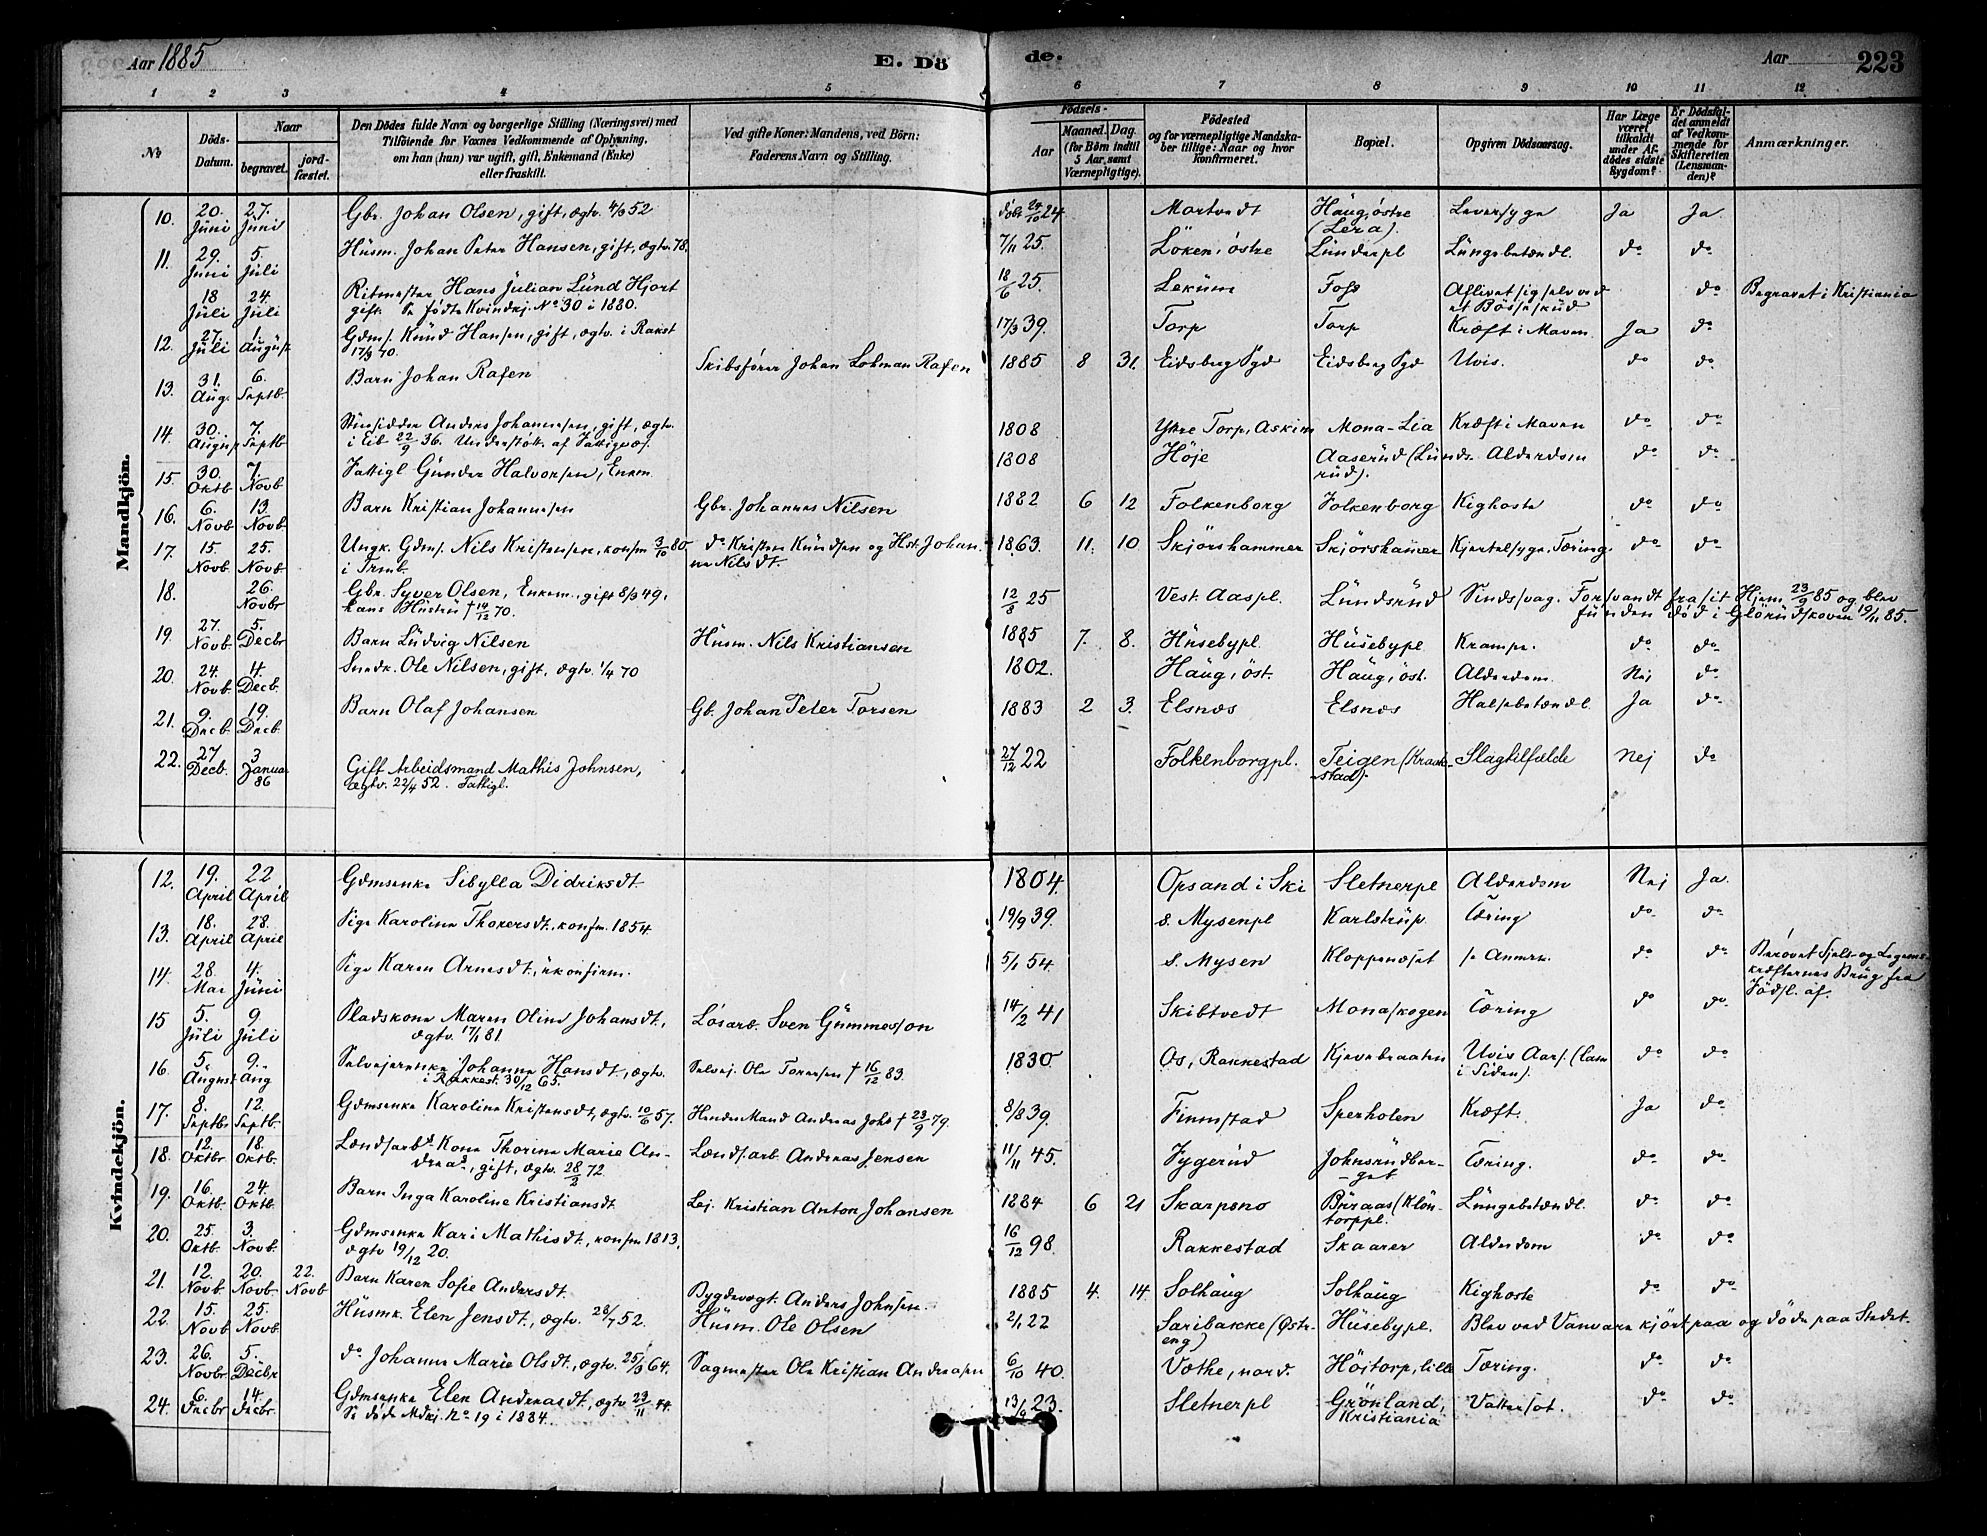 Aar 1885 E. Dö de. Aar 223
1 2 3 4 5 6 7 8 9 10 11 12
No
Döds-Datum.
Naar
begravet.
jord-fæstet.
Den Dödes fulde Navn og borgerlige Stilling (Næringsvei) med
Tilföiende for Voxnes Vedkommende af Oplysning,
om han (hun) var ugift, gift, Enkemand (Enke)
eller fraskilt.
Ved gifte Koner: Mandens, ved Börn:
Faderens Navn og Stilling.
Födsels-
Aar
Maaned. Dag.
(for Börn indtil
5 Aar, samt
Værnepligtige).
Födested
og for værnepligtige Mandska-
ber tillige: Naar og hvor
konfirmeret.
Bopæl.
Opgiven Dödsaarsag.
Har Læge
været
tilkaldt
under Af-
dödes sidste
Sygdom?
Er Dödsfal-
det anmeldt
af Vedkom-
mende for
Skifteretten
(Lensman-
den)?
Anmærkninger.
Mandkjön.
10. 20. Juni 27. Juni Gbr. Johan Olsen, gift, ægtv. 4/9 52 döbt 24/10 24 Mortvedt Haug, östre (Lera). Leversyge Ja Ja
11. 29. Juni 5. Juli Husm. Johan Peter Hansen, gift, ægtv. 78. 7/11 25. Löken, östre Lunderpl Lungebetændl. do do
18 Juli 24. Juli Ritmester Hans Julian Lund Hjort 18/6 25. Lekum Foss Aflivet sig selv ved do Begravet i Kristiania
gift. Se födte Kvindekj. No 30 i 1880. et Bösseskud
12. 27. Juli 1. August Gdms. Knud Hansen, gift, ægtv. i Rakst 17/3 39. Torp Torp Kræft i Maven Ja do
17/9 70.
13. 31. Aug. 6. Septb. Barn Johan Rafen Skibsförer Johan Lohman Rafen 1885 8 31. Eidsberg Pgd Eidsberg Pgd Uvis. do do
14. 30. August 7. Septb Anders Johannesen, gift, ægtv. 1808 Ytre Torp, Askim Mona-Lia Kræft i Maven do do
i Eib 22/9 36. Understött. af Fattigvæs.
15. 30. Oktb 7. Novb Fattigl Gunder Halvorsen, Enkm. 1808 Höje Aaserud (Lunds- Alderdom do do
rud).
16. 6. Novb 13 Novb. Barn Kristian Johannesen Gbr. Johannes Nilsen 1882 6 12 Folkenborg Folkenborg Kighoste do do
17. 15. Novb 25. Novb. Ungk. Gdms. Nils Kristensen, konfm 3/10 80 do Kristen Knudsen og Hst. Johan- 1863. 11. 10 Skjörshammer Skjörshamer Kjertelsyge. Tæring. do do
i Trmb. ne Nilsdt.
18. 26. Novbr Gbr. Syver Olsen, Enkem., gift 8/3 49, 12/8 25 Vest. Aaspl. Lundsrud Sindssvag. Forsvandt fra sit Hjem 23/9 85 og blev
hans Hustru † 14/12 70. funden död i Glörudskoven 19/11 85.
19. 27. Novb 5. Decbr Barn Ludvig Nilsen Husm. Nils Kristiansen 1885 7. 8. Husebypl. Husebype Krampe. do do
20. 24. Novb. 4. Decb. Ole Nilsen, gift, ægtv. 1/4 70 1802. Haug, öst. Haug, öst. Alderdom. Nej do
21. 9. Decb. 19. Decb. Barn Olaf Johansen Gb. Johan Peter Torsen 1883 2 3. Elsnæs Elsnæs Halsbetændl. Ja do
22. 27. Decb. 3 Januar 86 Gift Arbeidsmand Mathis Johnsen, 27/12 22 Folkenborgpl. Teigen (Krak- Slagtilfælde Nej do
ægtv. 22/4 52. Fattigl. stad).
Kvindekjön.
12. 19. April 22 April Gdmsenke Sibylla Didriksdt 1804. Opsand i Ski Sletnerpe Alderdom Nej Ja.
13. 18. April 28. April Pige Karoline Thorersdt, konfm. 1854. 19/9 39. s. Mysenpl Karlstrup. Tæring do do
14. 28. Mai 4. Juni Pige Karen Arnesdt, ukonfirm. 5/1 54. s. Mysen Kloppenæset se Anmrk. do do Berövet Sjels- og Legems-
kræfternes Brug fra
Födsl. af.
15 5. Juli 9. Juli Pladskone Maren Oline Johansdt, Lösarb. Sven Gummesson 14/2 41 Skibtvedt Monaskogen Tæring do do
ægtv. 17/1 81.
16. 5. August 9. Aug Selvejerenke Johanne Hansdt, ægtv. Selvej. Ole Torersen † 16/12 83. 1830. Os, Rakkestad Kjevebraaten Uvis Aars. (lam do do
i Rakkest. 30/12 65. i Siden).
17. 8. Septbr 12. Septb. Gdmsenke Karoline Kristensdt, ægtv. 10/6 57. Hendes Mand Andreas Johs † 23/9 79. 8/8 39. Finnstad Sperholen Kræft. Ja do
18. 12. Oktbr 18. Oktb. Lændsarbs Kone Thorine Marie An- Lændsarb. Andreas Jensen 11/11 45. Fygerud Johnsrudber- Tæring. do do
dreasd, gift, ægtv. 28/2 72 get
19. 16. Oktb. 24. Oktb. Barn Inga Karoline Kristiansdt Lej. Kristian Anton Johansen 1884 6 21 Skarpsno Buraas (Klön- Lungebetændl. do do
torppl.
20. 25. Oktb. 3. Novb. Gdmsenke Kari Mathisdt, konfm 1813, 16/12 98. Rakkestad Skaarer Alderdom do do
ægtv 19/12 20.
21. 12. Novb. 20. Novb. 22. Novb Barn Karen Sofie Andersdt. Bygdevægt. Anders Johnsen. 1885 4. 14. Solhaug Solhaug Kighoste do do
22. 15. Novb 25. Novb. Husmk. Elen Jensdt., ægtv. 28/7 52. Husm. Ole Olsen 2/1 22 Saribakke (Östr- Husebype. Blev ved Vanvare kjört paa og döde paa Stedet.
eng)
23. 26. Novbr 5. Decbr do Johanne Marie Olsdt., ægtv. 25/3 64. Sagmester Ole Kristian Andreasen 6/10 40. Vothe, nord. Höitorp, lille Tæring. do do
24. 6. Decbr 14. Decbr. Gdmsenke Elen Andreasdt, ægtv. 23/11 44. 13/9 23. Sletnerpl Grönland, Vattersot. do do
Se döde Mdkj. No 19 i 1884. Kristiania